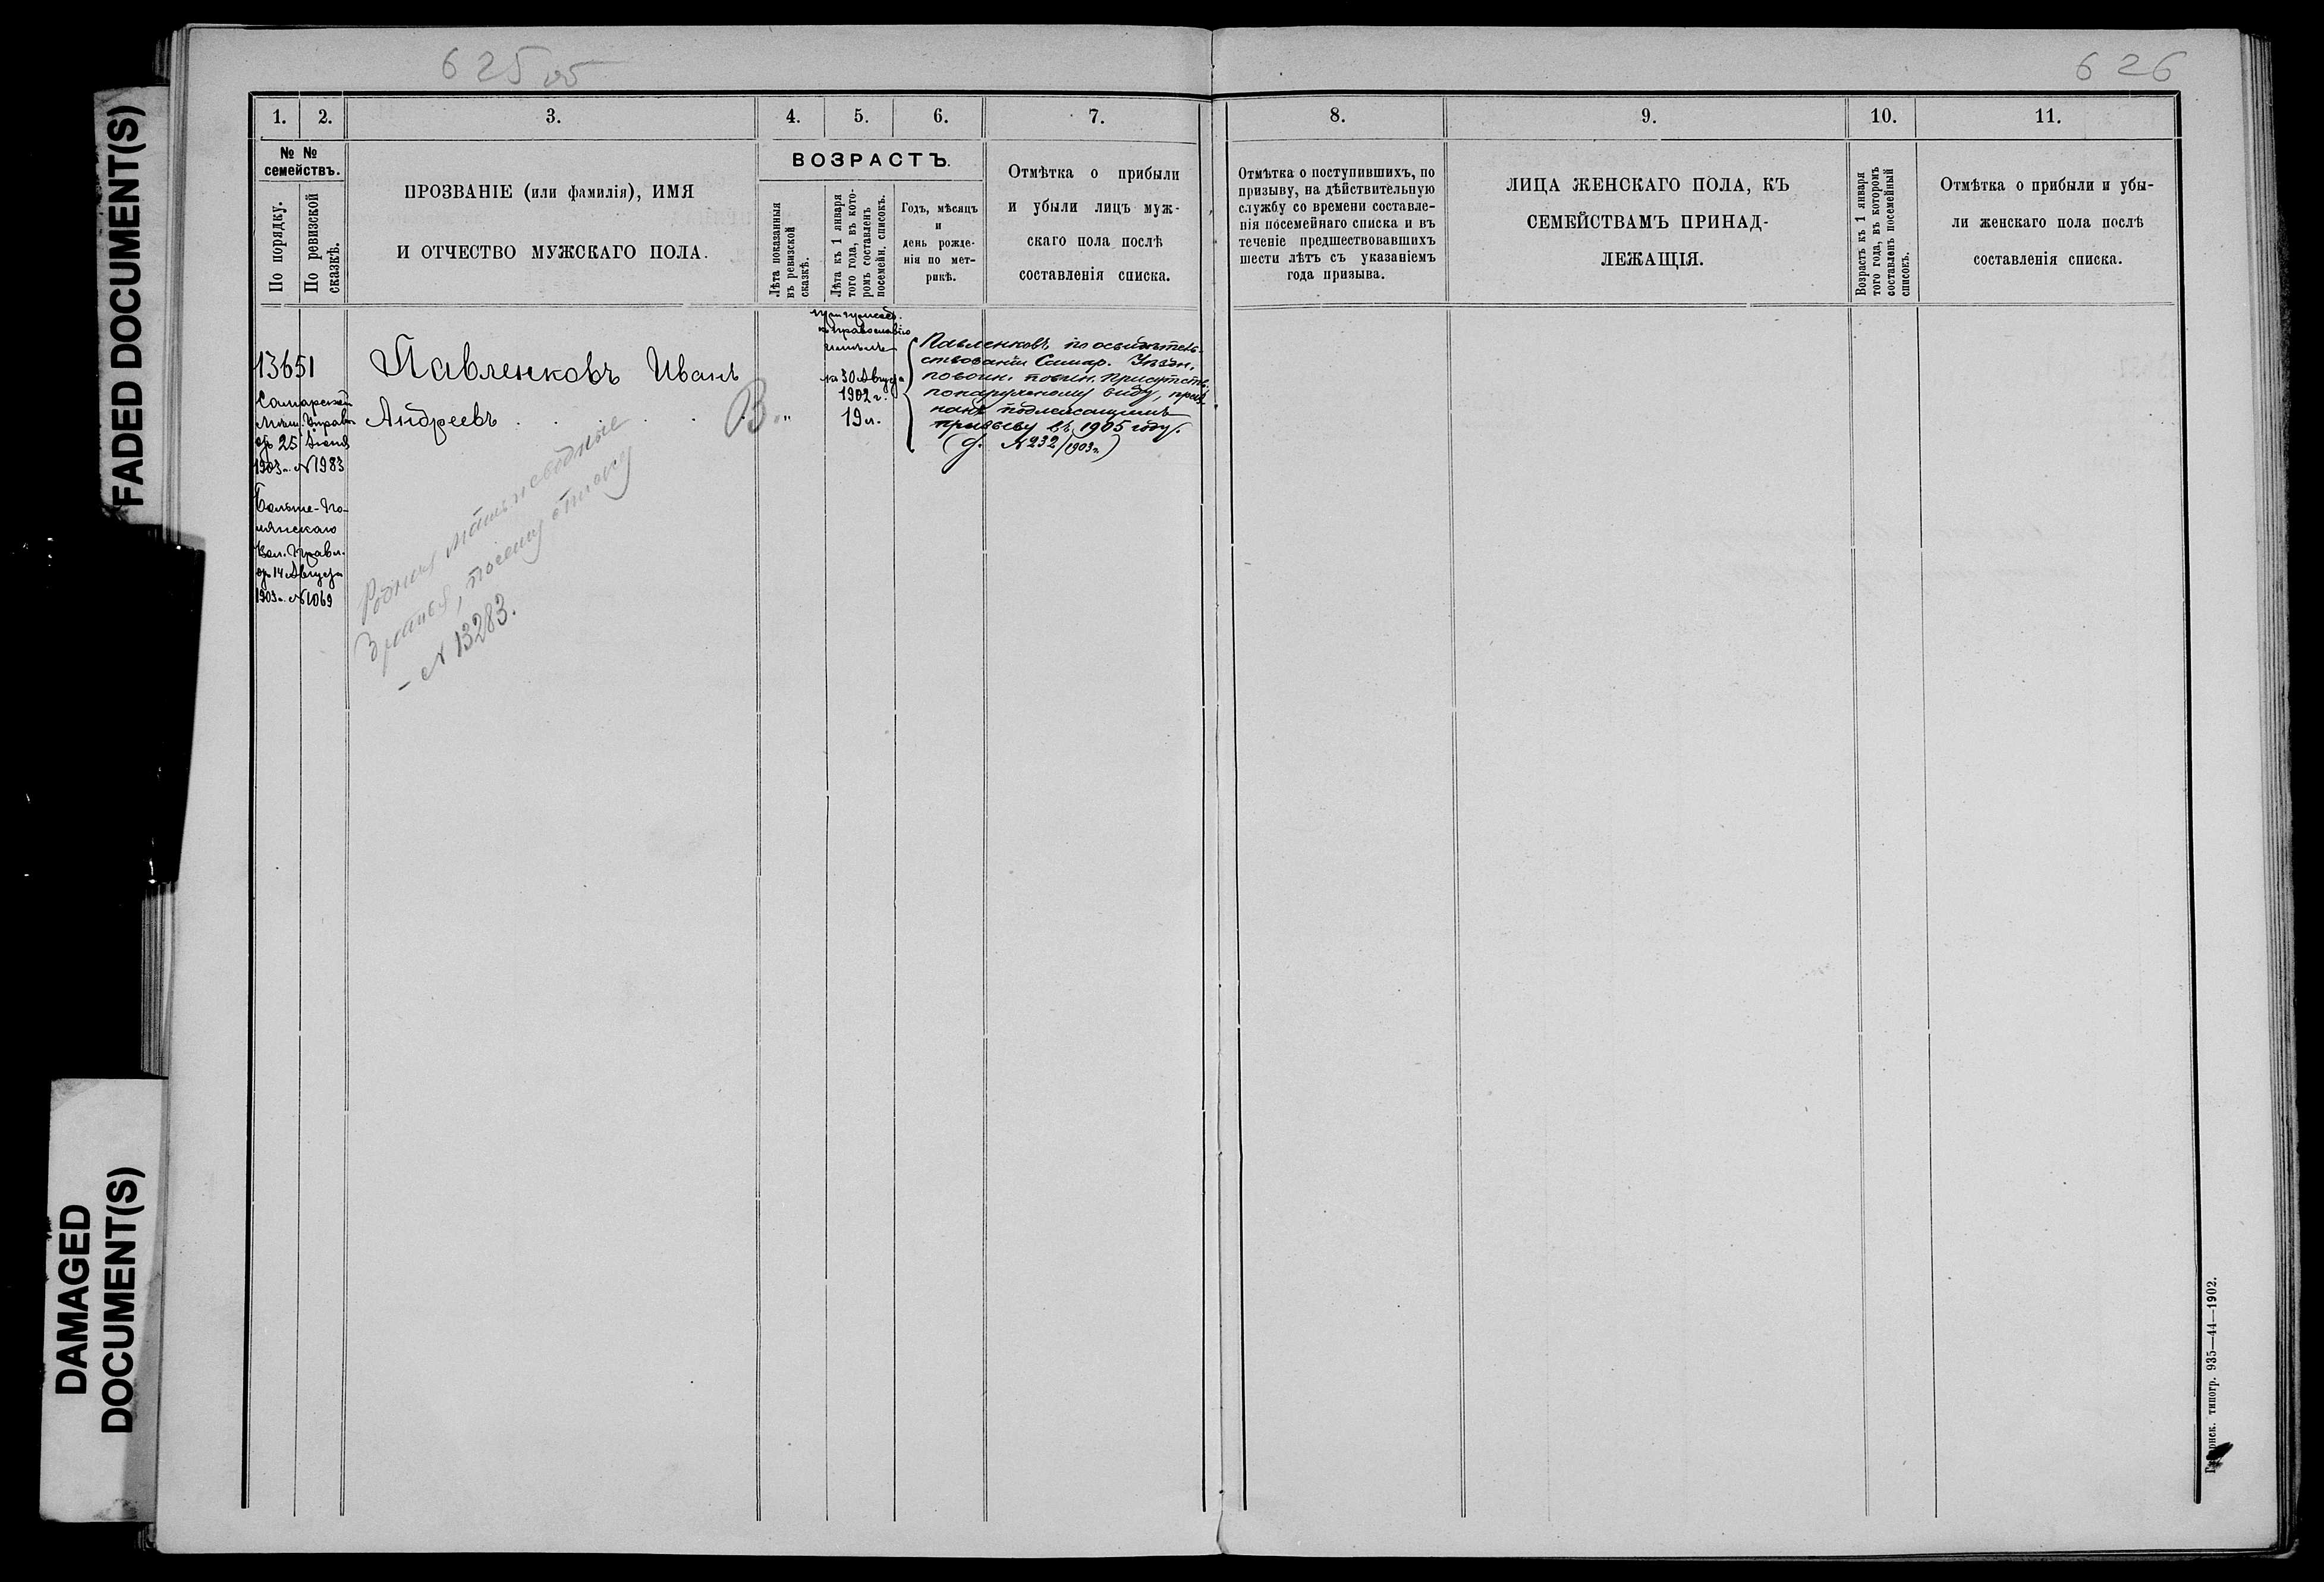 FADED DOCUMENT(S)
DAMAGED
DOCUMENT(S)
625 об
626
1.
2.
3.
4.
5.
6.
7.
8.
9.
10.
11.
№ №
семействъ.
По порядку.
По ревизской
сказкѣ.
ПРОЗВАНІЕ (или фамилія), ИМЯ
И ОТЧЕСТВО МУЖСКАГО ПОЛА.
ВОЗРАСТЪ.
Лѣта показанныя
въ ревизской
сказкѣ.
Лѣта къ 1 января
того года, въ кото-
ромъ составленъ
посемейн. списокъ.
Годъ, мѣсяцъ
и
день рожде-
нія по мет-
рикѣ.
Отмѣтка о прибыли
и убыли лицъ муж-
скаго пола послѣ
составленія списка.
Отмѣтка о поступившихъ, по
призыву, на дѣйствительную
службу со времени составле-
нія посемейнаго списка и въ
теченіе предшествовавшихъ
шести лѣтъ съ указаніемъ
года призыва.
ЛИЦА ЖЕНСКАГО ПОЛА, КЪ
СЕМЕЙСТВАМЪ ПРИНАД-
ЛЕЖАЩІЯ.
Возрастъ къ 1 января
того года, въ которомъ
составленъ посемейный
списокъ.
Отмѣтка о прибыли и убы-
ли женскаго пола послѣ
составленія списка.
13651
Самарской
Мѣщ. Управы
25 Іюня
1903 г. №1983
Вол. Правл.
14 Августа
1903 г. №1069
Павленковъ Иванъ
Андреевъ
В.
"
православію
30 Августа
1902 г.
19 л.
Павленковъ по освидѣтель-
ствованіи Самар. Уѣздн.
по воин. повин. Присутств.
по наружному виду, приз-
нанъ подлежащимъ
призыву въ 1905 году.
(д. №232/1903 г.)
Родныя мать и сводные
братья, посему отписку
- № 13283.
типогр. 935—44—1902.